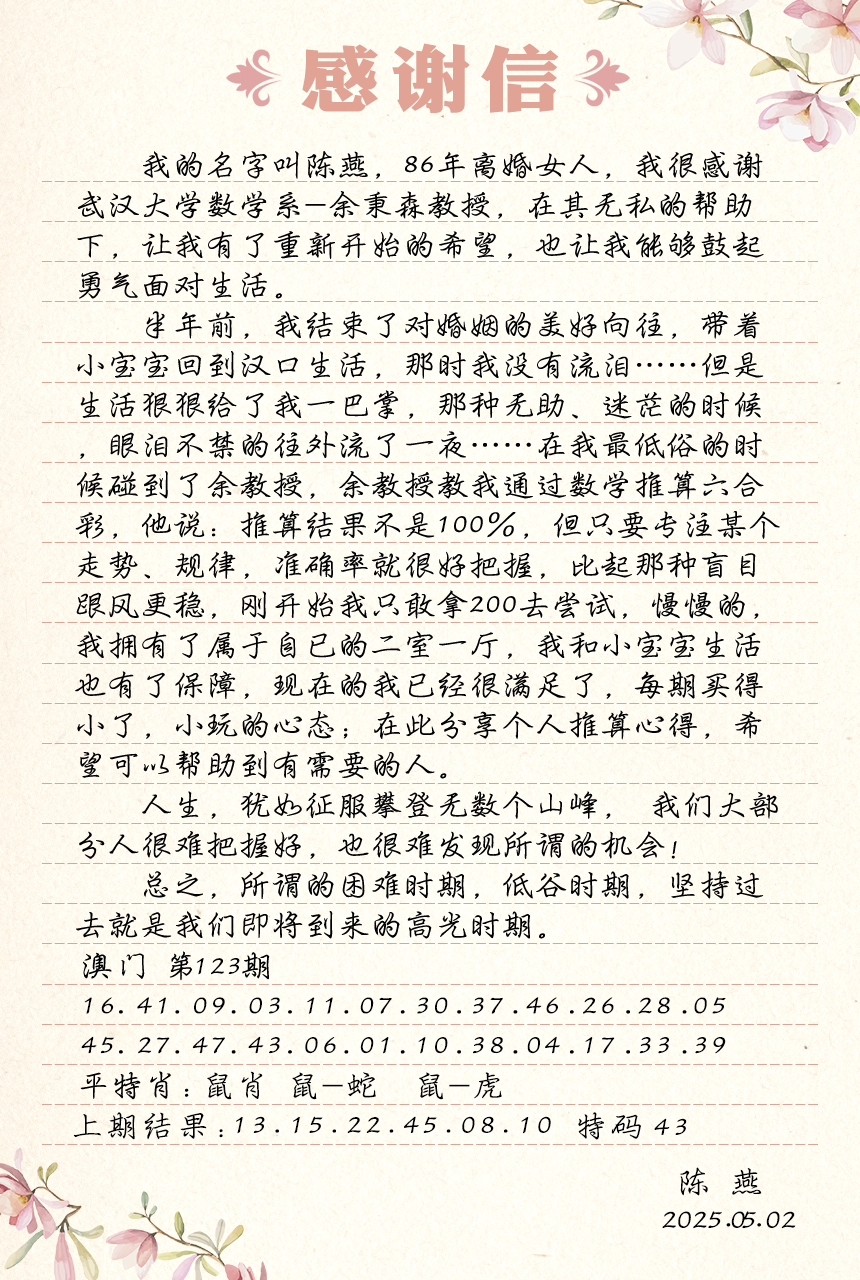 感谢信
我的名字叫陈燕，86年离婚女人，我很感谢
武汉大学数学系—余秉森教授，在其无私的帮助
下，让我有了重新开始的希望，也让我能够鼓起
勇气面对生活。
半年前，我结束了对婚姻的美好向往，带着
小宝宝回到汉口生活，那时我没有流泪……但是
生活狠狠给了我一巴掌，那种无助、迷茫的时候
，眼泪不禁的往外流了一夜……在我最低俗的时
候碰到了余教授，余教授教我通过数学推算六合
彩，他说：推算结果不是100%，但只要专注某个
走势、规律，准确率就很好把握，比起那种盲目
跟风更稳，刚开始我只敢拿200去尝试，慢慢的，
我拥有了属于自已的二室一厅，我和小宝宝生活
也有了保障，现在的我已经很满足了，每期买得
小了，小玩的心态；在此分享个人推算心得，希
望可以帮助到有需要的人。
人生，犹如征服攀登无数个山峰， 我们大部
分人很难把握好，也很难发现所谓的机会！
总之，所谓的困难时期，低谷时期，坚持过
去就是我们即将到来的高光时期。
澳门 第123期
16.41.09.03.11.07.30.37.46.26.28.05
45.27.47.43.06.01.10.38.04.17.33.39
平特肖：鼠肖 鼠—蛇 鼠—虎
上期结果：13.15.22.45.08.10 特码43
陈 燕
2025.05.02